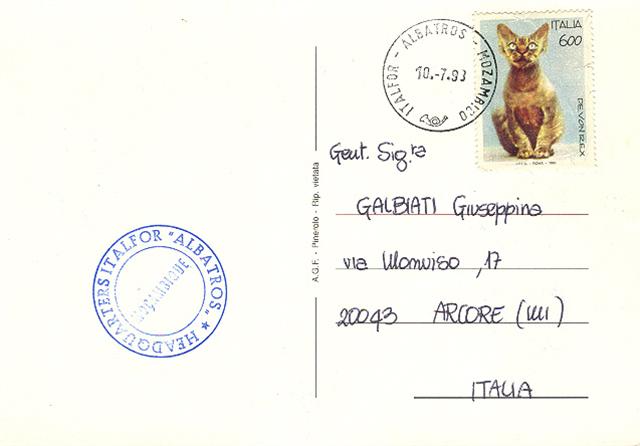 ITALFOR - ALBATROS - MOZAMBICO
10.-7.93
ITALIA
600
DEVON REX
Gent. Sig.ra
GALBIATI Giuseppina
via Monviso, 17
20043 ARCORE (MI)
ITALIA
A.G.F. - Pinerolo - Rip. vietata
HEADQUARTERS ITALFOR "ALBATROS"
MOÇAMBIQUE